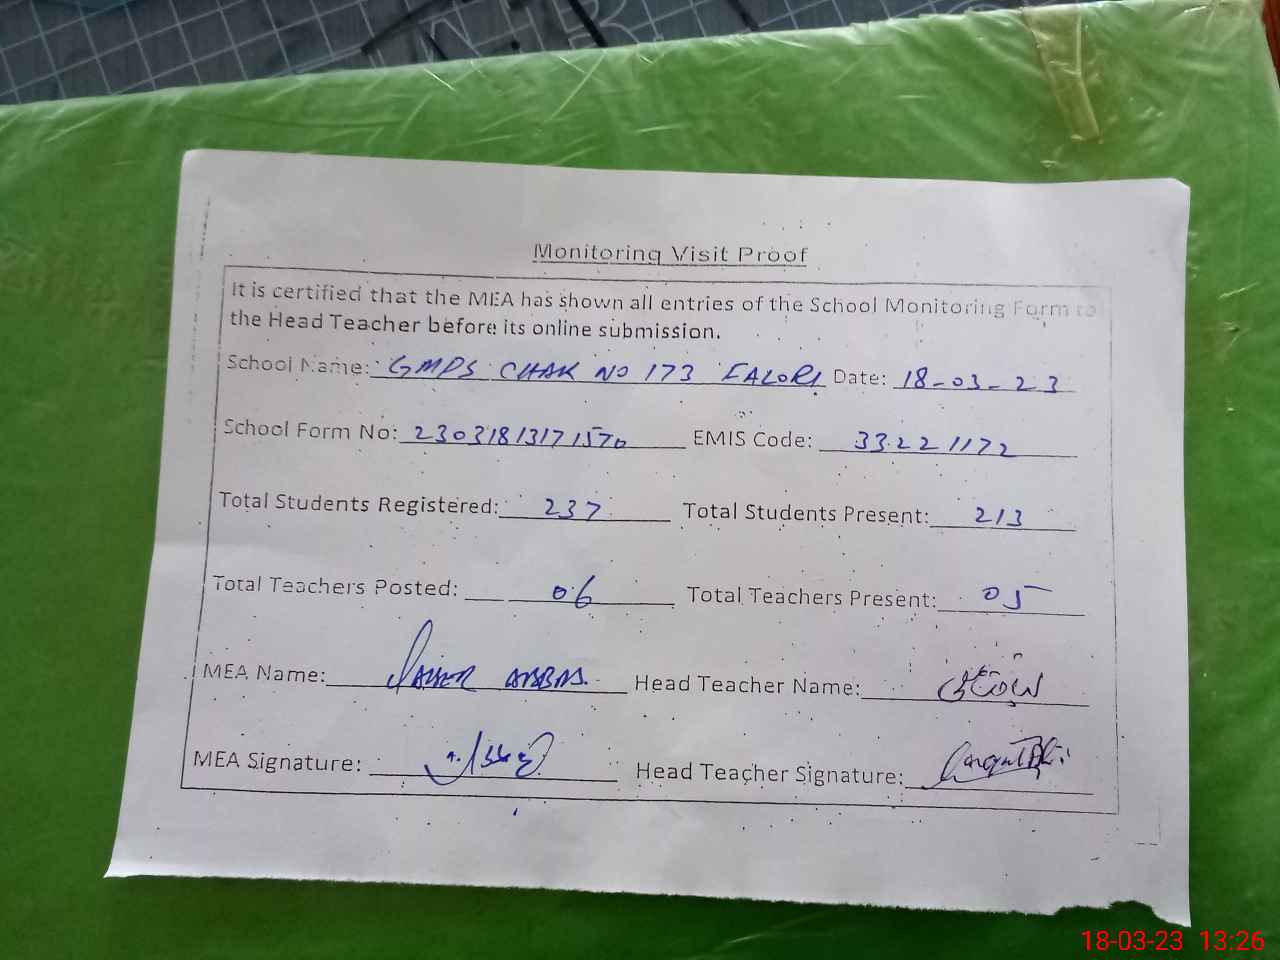 Monitoring Visit Proof
It is certified that the MEA has shown all entries of the School Monitoring Form to
the Head Teacher before its online submission.
School Name: GMPS CHAK NO 173 FALORI Date: 18-03-23
School Form No: 23031813171570 EMIS Code: 33221172
Total Students Registered: 237 Total Students Present: 213
Total Teachers Posted: 06 Total Teachers Present: 05
MEA Name: ABBAS Head Teacher Name:
MEA Signature: Head Teacher Signature:
18-03-23 13:26